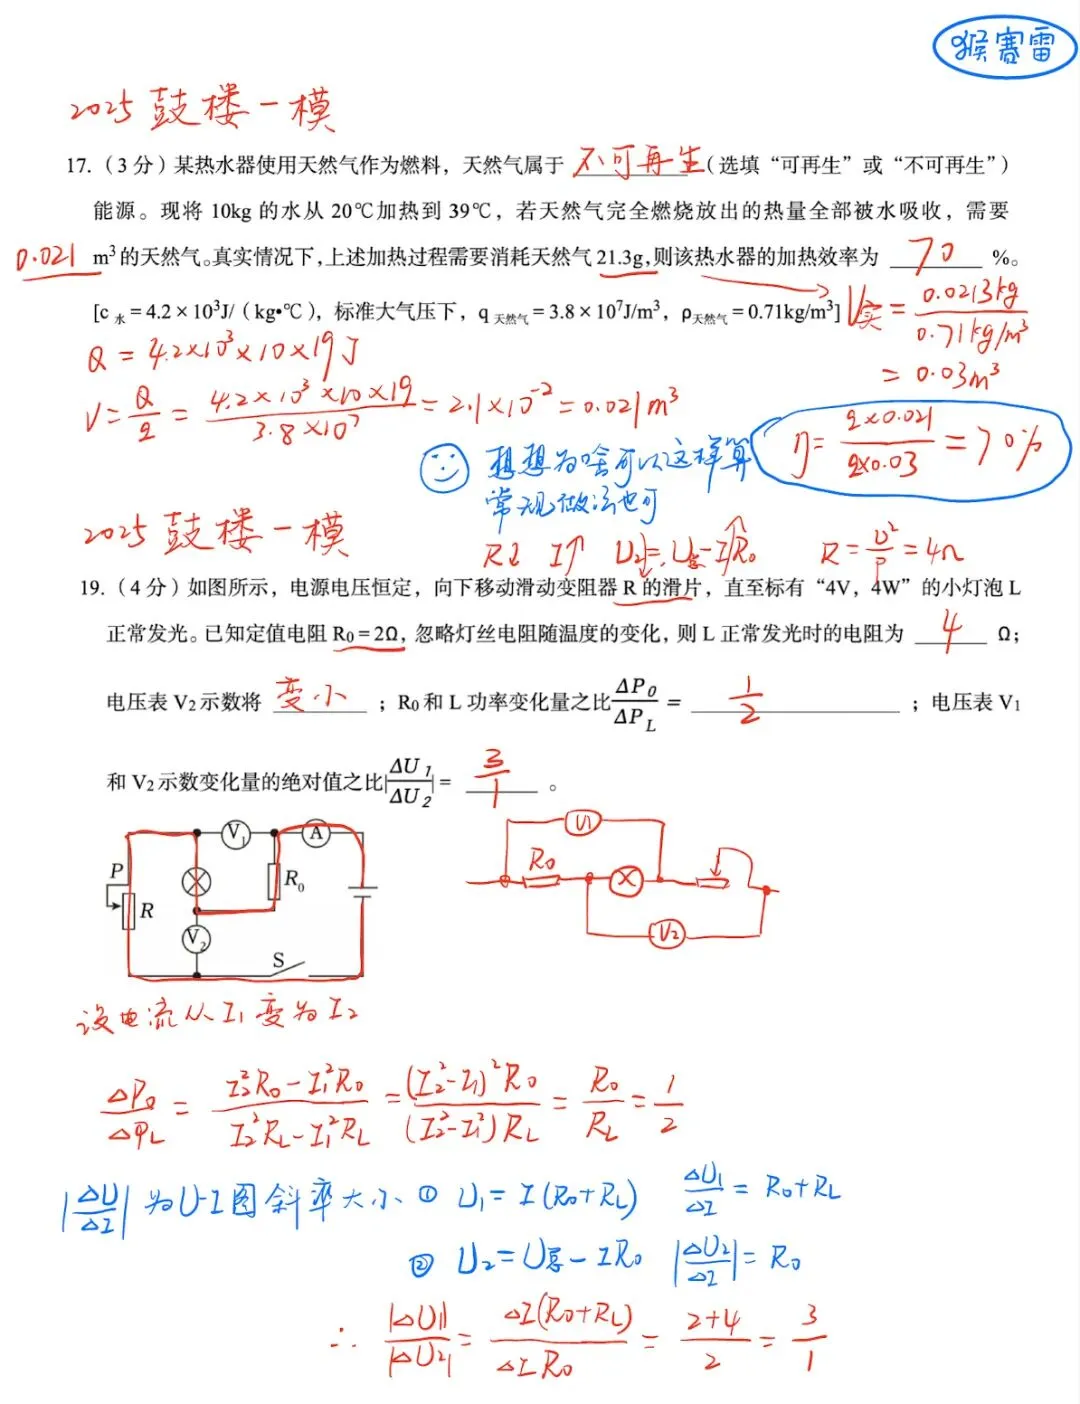 猴赛雷
2025 鼓楼一模
17.（3 分）某热水器使用天然气作为燃料，天然气属于 不可再生（选填“可再生”或“不可再生”）
能源。现将 10kg 的水从 20℃加热到 39℃，若天然气完全燃烧放出的热量全部被水吸收，需要
0.021 m³的天然气。真实情况下，上述加热过程需要消耗天然气 21.3g，则该热水器的加热效率为 70 %。
[c水＝4.2×10³J/（kg•℃），标准大气压下，q天然气＝3.8×10⁷J/m³，ρ天然气＝0.71kg/m³]
V实 = 0.0213kg / 0.71kg/m³
= 0.03m³
Q = 4.2×10³×10×19J
V = Q/q = 4.2×10³×10×19 / 3.8×10⁷ = 2.1×10⁻² = 0.021m³
η = q×0.021 / q×0.03 = 70%
想想为啥可以这样算
常规做法也可
2025 鼓楼一模
R↓ I↑ U2↓=U总-I↑R0 R=U²/P=4Ω
19.（4 分）如图所示，电源电压恒定，向下移动滑动变阻器 R 的滑片，直至标有“4V，4W”的小灯泡 L
正常发光。已知定值电阻 R0＝2Ω，忽略灯丝电阻随温度的变化，则 L 正常发光时的电阻为 4 Ω；
电压表 V2 示数将 变小；R0 和 L 功率变化量之比ΔP0/ΔPL = 1/2；电压表 V1
和 V2 示数变化量的绝对值之比|ΔU1/ΔU2|= 3/1。
V1 A
P R R0
V2 S
U1
R0
U2
设电流从 I1 变为 I2
ΔP0/ΔPL = I2²R0-I1²R0 / I2²RL-I1²RL = (I2²-I1)²R0 / (I2²-I1²)RL = R0/RL = 1/2
|ΔU/ΔI| 为U-I图斜率大小 ① U1=I(R0+RL) ΔU1/ΔI=R0+RL
② U2=U总-IR0 |ΔU2/ΔI|=R0
∴ |ΔU1|/|ΔU2| = ΔI(R0+RL)/ΔIR0 = 2+4/2 = 3/1